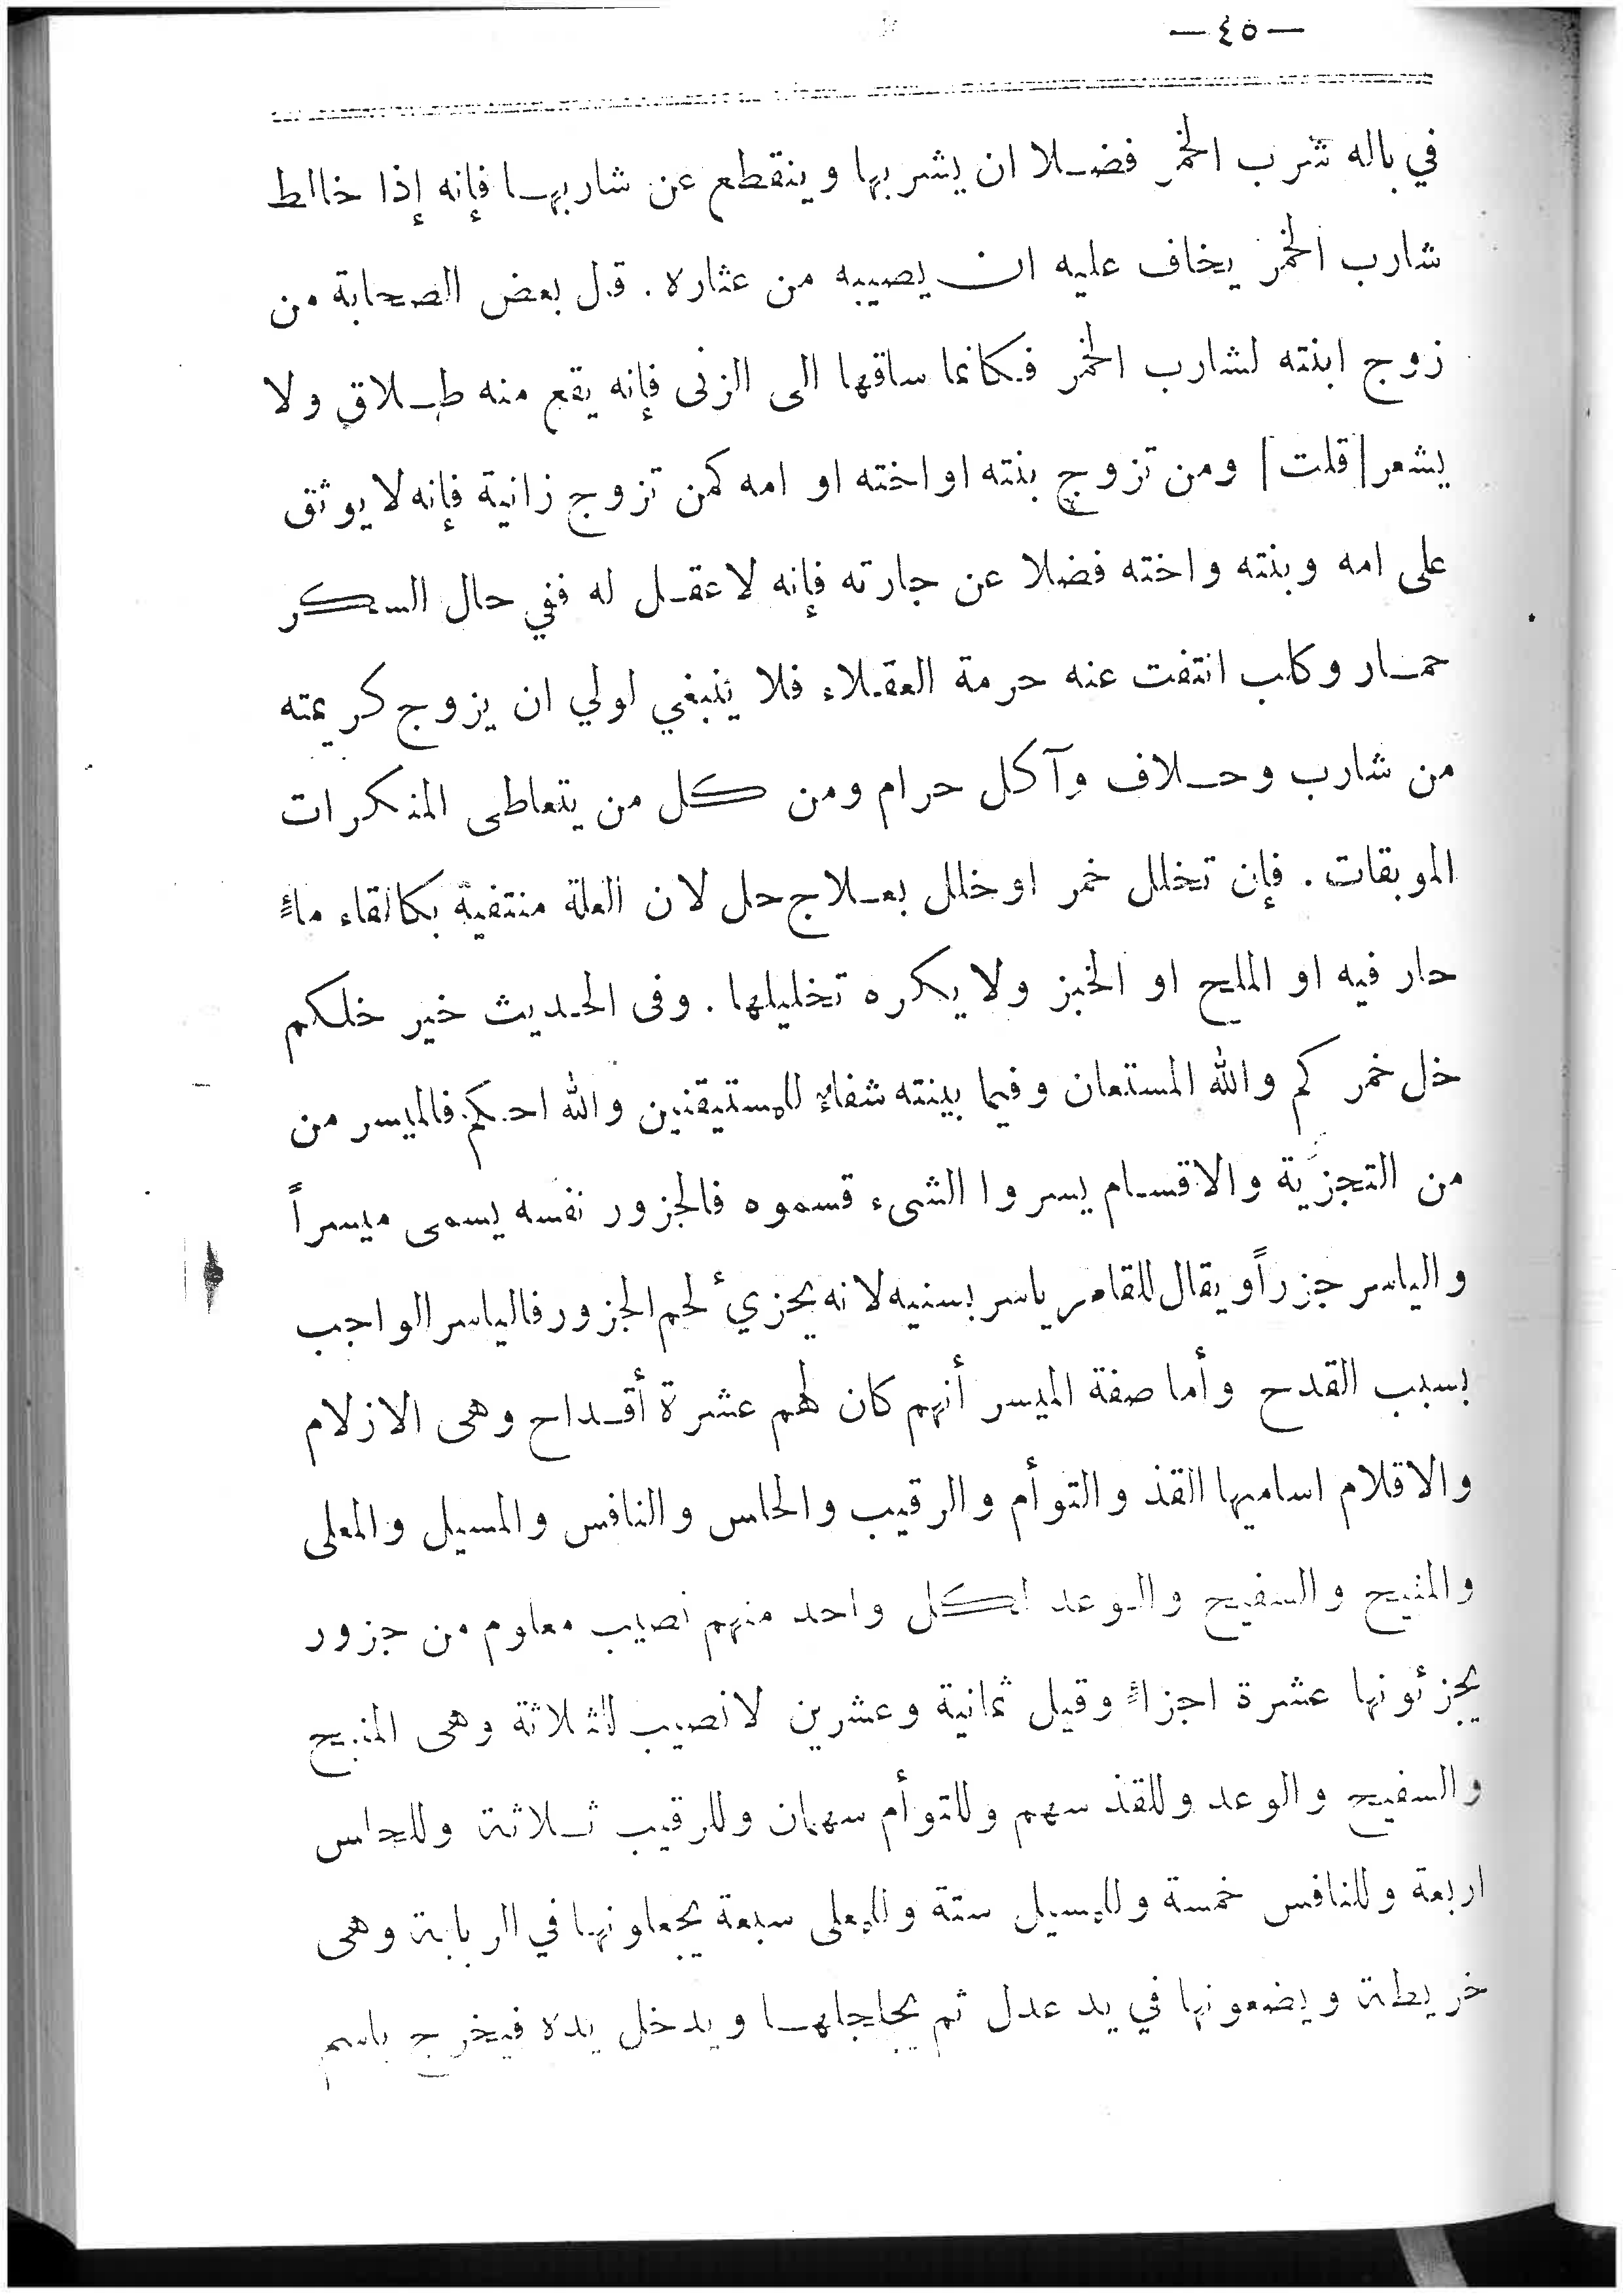 —٤٥—
في باله شرب الخمر فضلا ان يشربها وينقطع عن شاربها فإنه إذا خالط
شارب الخمر يخاف عليه ان يصيبه من عثاره . قل بعض الصحابة من
زوج ابنته لشارب الخمر فكانما ساقها الى الزنى فإنه يقع منه طلاق ولا
يشعر [قلت] ومن تزوج بنته او اخته او امه كمن تزوج زانية فإنه لا يوثق
على امه وبنته واخته فضلا عن جارته فإنه لا عقل له ففي حال السكر
حمار وكلب انتفت عنه حرمة العقلاء فلا ينبغي لولي ان يزوج كريمته
من شارب وحلاف وآكل حرام ومن كل من يتعاطى المنكرات
الموبقات . فإن تخلل خمر او خلل بعلاج حل لان العلة منتفية بكالقاء ماءً
حار فيه او الملح او الخبز ولا يكره تخليلها . وفى الحديث خير خلكم
خل خمركم والله المستعان وفيما بينته شفاءٌ للمستيقنين والله احكم فالميسر من
من التجزَية والاقسام يسروا الشىء قسموه فالجزور نفسه يسمى ميسراً
والياسر جزراً ويقال للقامر ياسر بسنيه لانه يجزيُ لحم الجزور فالياسر الواجب
بسبب القدح وأما صفة الميسر أنهم كان لهم عشرة أقداح وهى الازلام
والاقلام اساميها القذ والتوأم والرقيب والحلس والنافس والمسيل والمعلى
والمنيح والسفيح والوعد لكل واحد منهم نصيب معلوم من جزور
يجزئونها عشرة اجزاءً وقيل ثمانية وعشرين لا نصيب لثلاثة وهى المنيح
والسفيح والوعد وللقذ سهم وللتوأم سهمان وللرقيب ثلاثة وللحلس
اربعة وللنافس خمسة وللمسيل ستة وللمعلى سبعة يجعلونها في الربابة وهى
خريطة ويضعونها في يد عدل ثم يجلجلها ويدخل يده فيخرج باسم